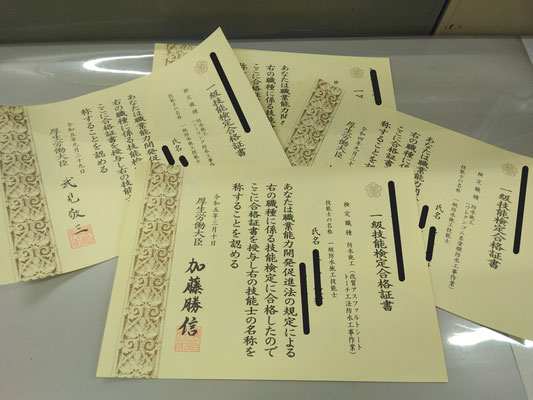 一級技能検定合格証書
検定職種　防水施工（改質アスファルトシート
トーチ工法防水工事作業）
技能士の名称　一級防水施工技能士
氏名
あなたは職業能力開発促進法の規定による
右の職種に係る技能検定に合格したので
ここに合格証書を授与し右の技能士の名称を
称することを認める
令和五年三月十日
厚生労働大臣　加藤勝信
一級技能検定合格証書
検定職種　防水施工
技能士の名称
氏名
あなたは職業能力開発促
右の職種に係る技能
ここに合格証書を授与し右の技
称することを認める
厚生労働大臣　武見敬三
検定職種
一
あなたは職業能力開
右の職種に係る技
ここに合格証書
一級技能検定合格証書
検定職種　防水施工
技能士の名称　一級防水施工技能士
氏名
あなたは職業能力
右の職種に係る技
ここに合格証書